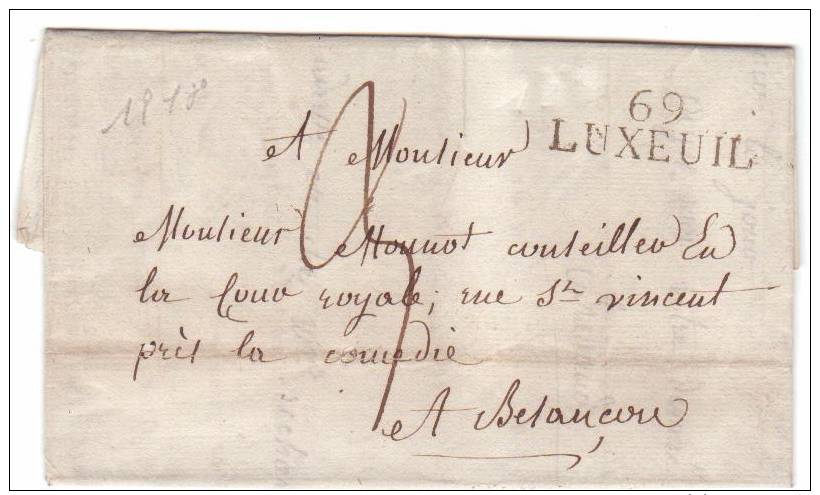 1818
69
LUXEUIL
A Monsieur
Monsieur Monnot conseiller En
la Cour royale; rue St vincent
près la comedie
A Besançon